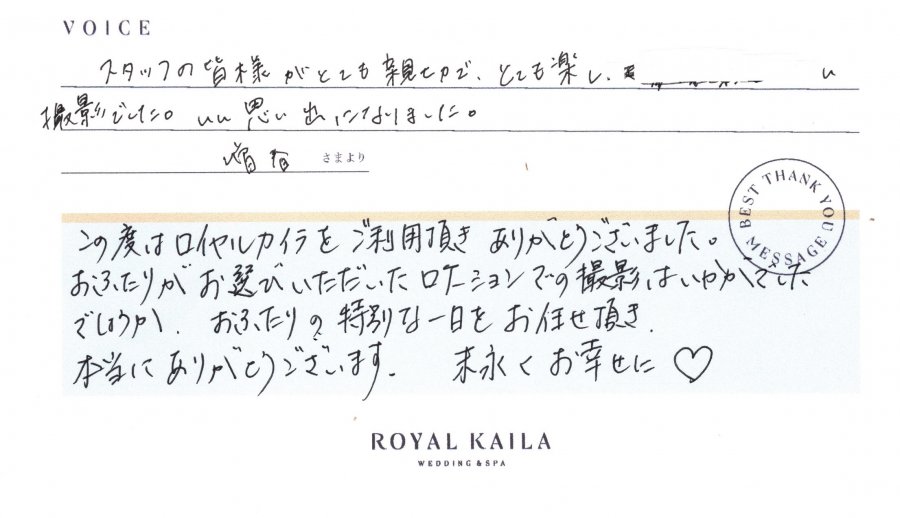 VOICE
スタッフの皆様がとても親切で、とても楽しい
撮影でした。いい思い出になりました。
さまより
BEST THANK YOU MESSAGE
この度はロイヤルカイラをご利用頂きありがとうございました。
おふたりがお選びいただいたロケーションでの撮影はいかがでした
でしょうか. おふたりの特別な一日をお任せ頂き.
本当にありがとうございます. 末永くお幸せに♡
ROYAL KAILA
WEDDING & SPA